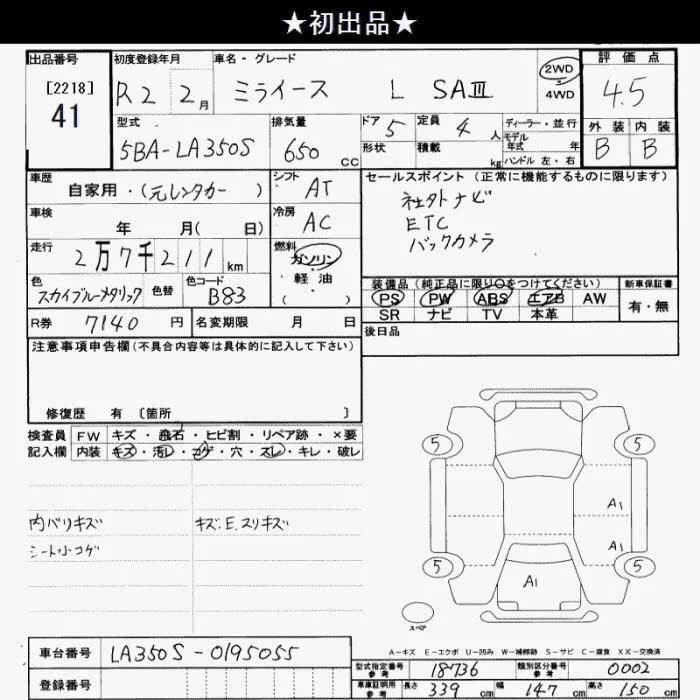 ★初出品★
出品番号 初度登録年月 車名・グレード 評価点
[2218]
41
R2 2月 ミライース L SAⅢ 2WD 4.5
4WD
型式 排気量 ドア 5 定員 4人 ディーラー・並行 外装 内装
5BA-LA350S 650cc 形状 積載 kg モデル年式 年 B B
ハンドル 左・右
車歴 自家用・(元レンタカー) シフト AT セールスポイント(正常に機能するものに限ります)
社外ナビ
車検 年 月( 日) 冷房 AC ETC
バックカメラ
走行 2万7千211km 燃料 ガソリン・軽油( )
色 スカイブルーメタリック 色替 色コード B83
装備品(純正品に限り○をつけてください) 新車保証書
PS PW ABS エアB AW 有・無
SR ナビ TV 本革
R券 7140円 名変期限 月 日 後日品
注意事項申告欄(不具合内容等は具体的に記入して下さい)
修復歴 有 〔箇所 〕
検査員 FW キズ・飛石・ヒビ割・リペア跡・×要
記入欄 内装 キズ・汚レ・コゲ・穴・スレ・キレ・破レ
内バリキズ キズ:E.スリキズ
シート小コゲ
5 5
A1
A1
5 5
A1
スペア
A-キズ E-エクボ U-凹み W-補修跡 S-サビ C-腐食 XX-交換済
車台番号 LA350S-0195055
型式指定番号 参考 18736 類別区分番号 参考 0002
登録番号 車庫証明用 参考 長さ 339cm 幅 147cm 高さ 150cm